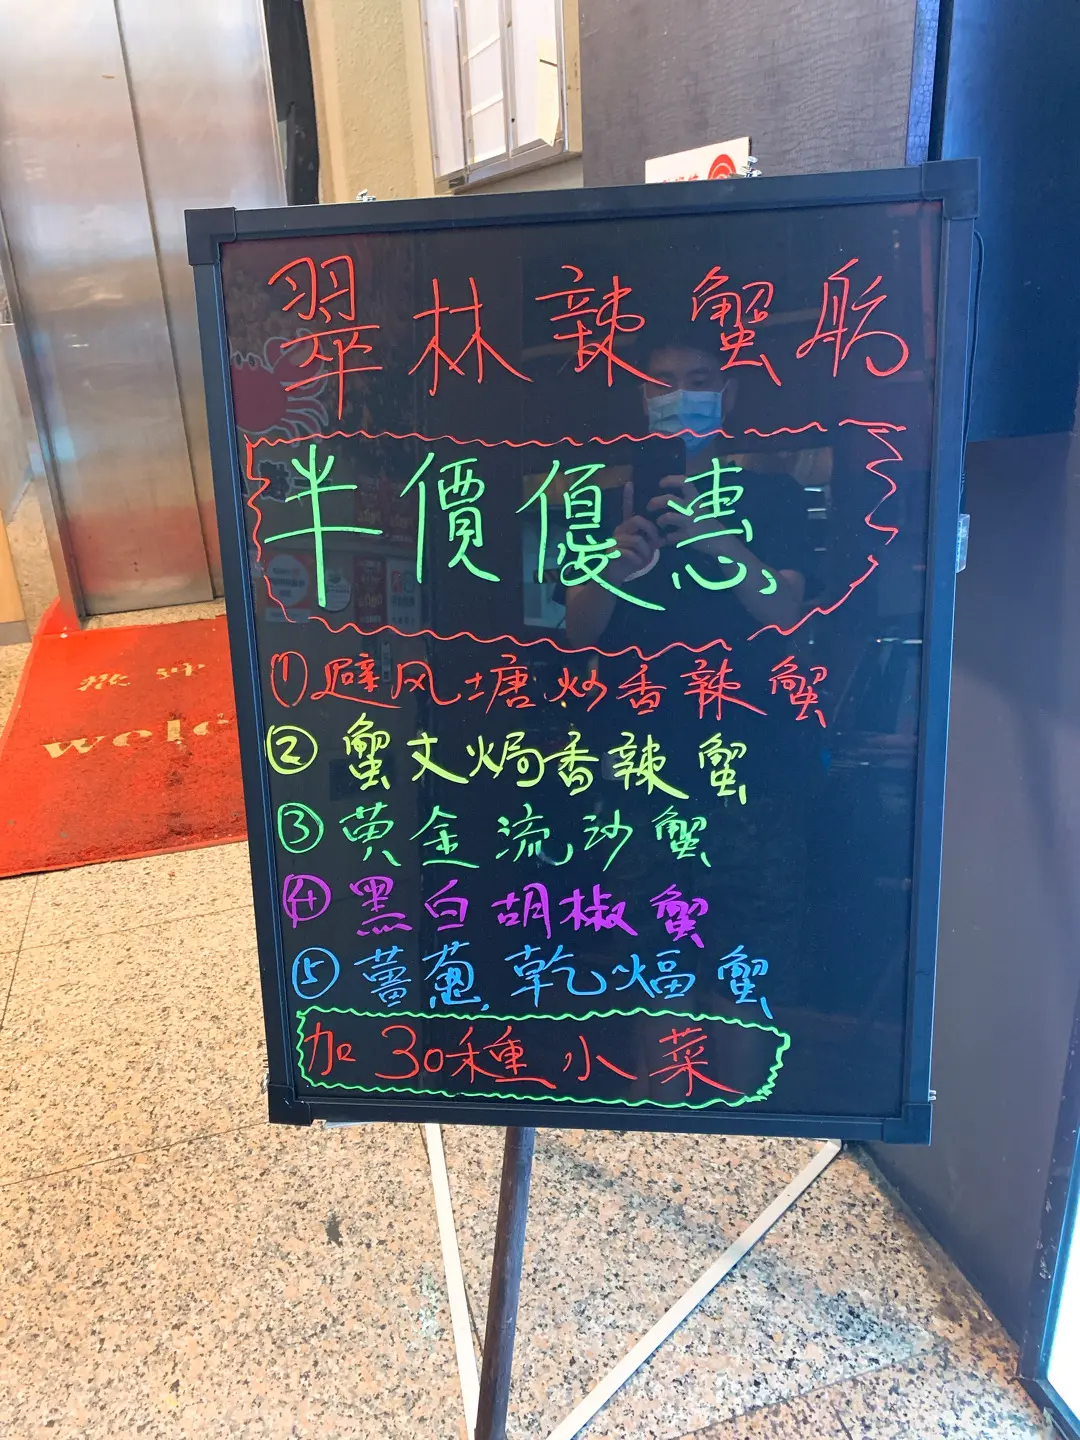 翠林辣蟹舫
半價優惠
①避风塘炒香辣蟹
②蟹文焗香辣蟹
③黄金流沙蟹
④黑白胡椒蟹
⑤薑蔥乾煏蟹
加30種小菜
歡迎
welc